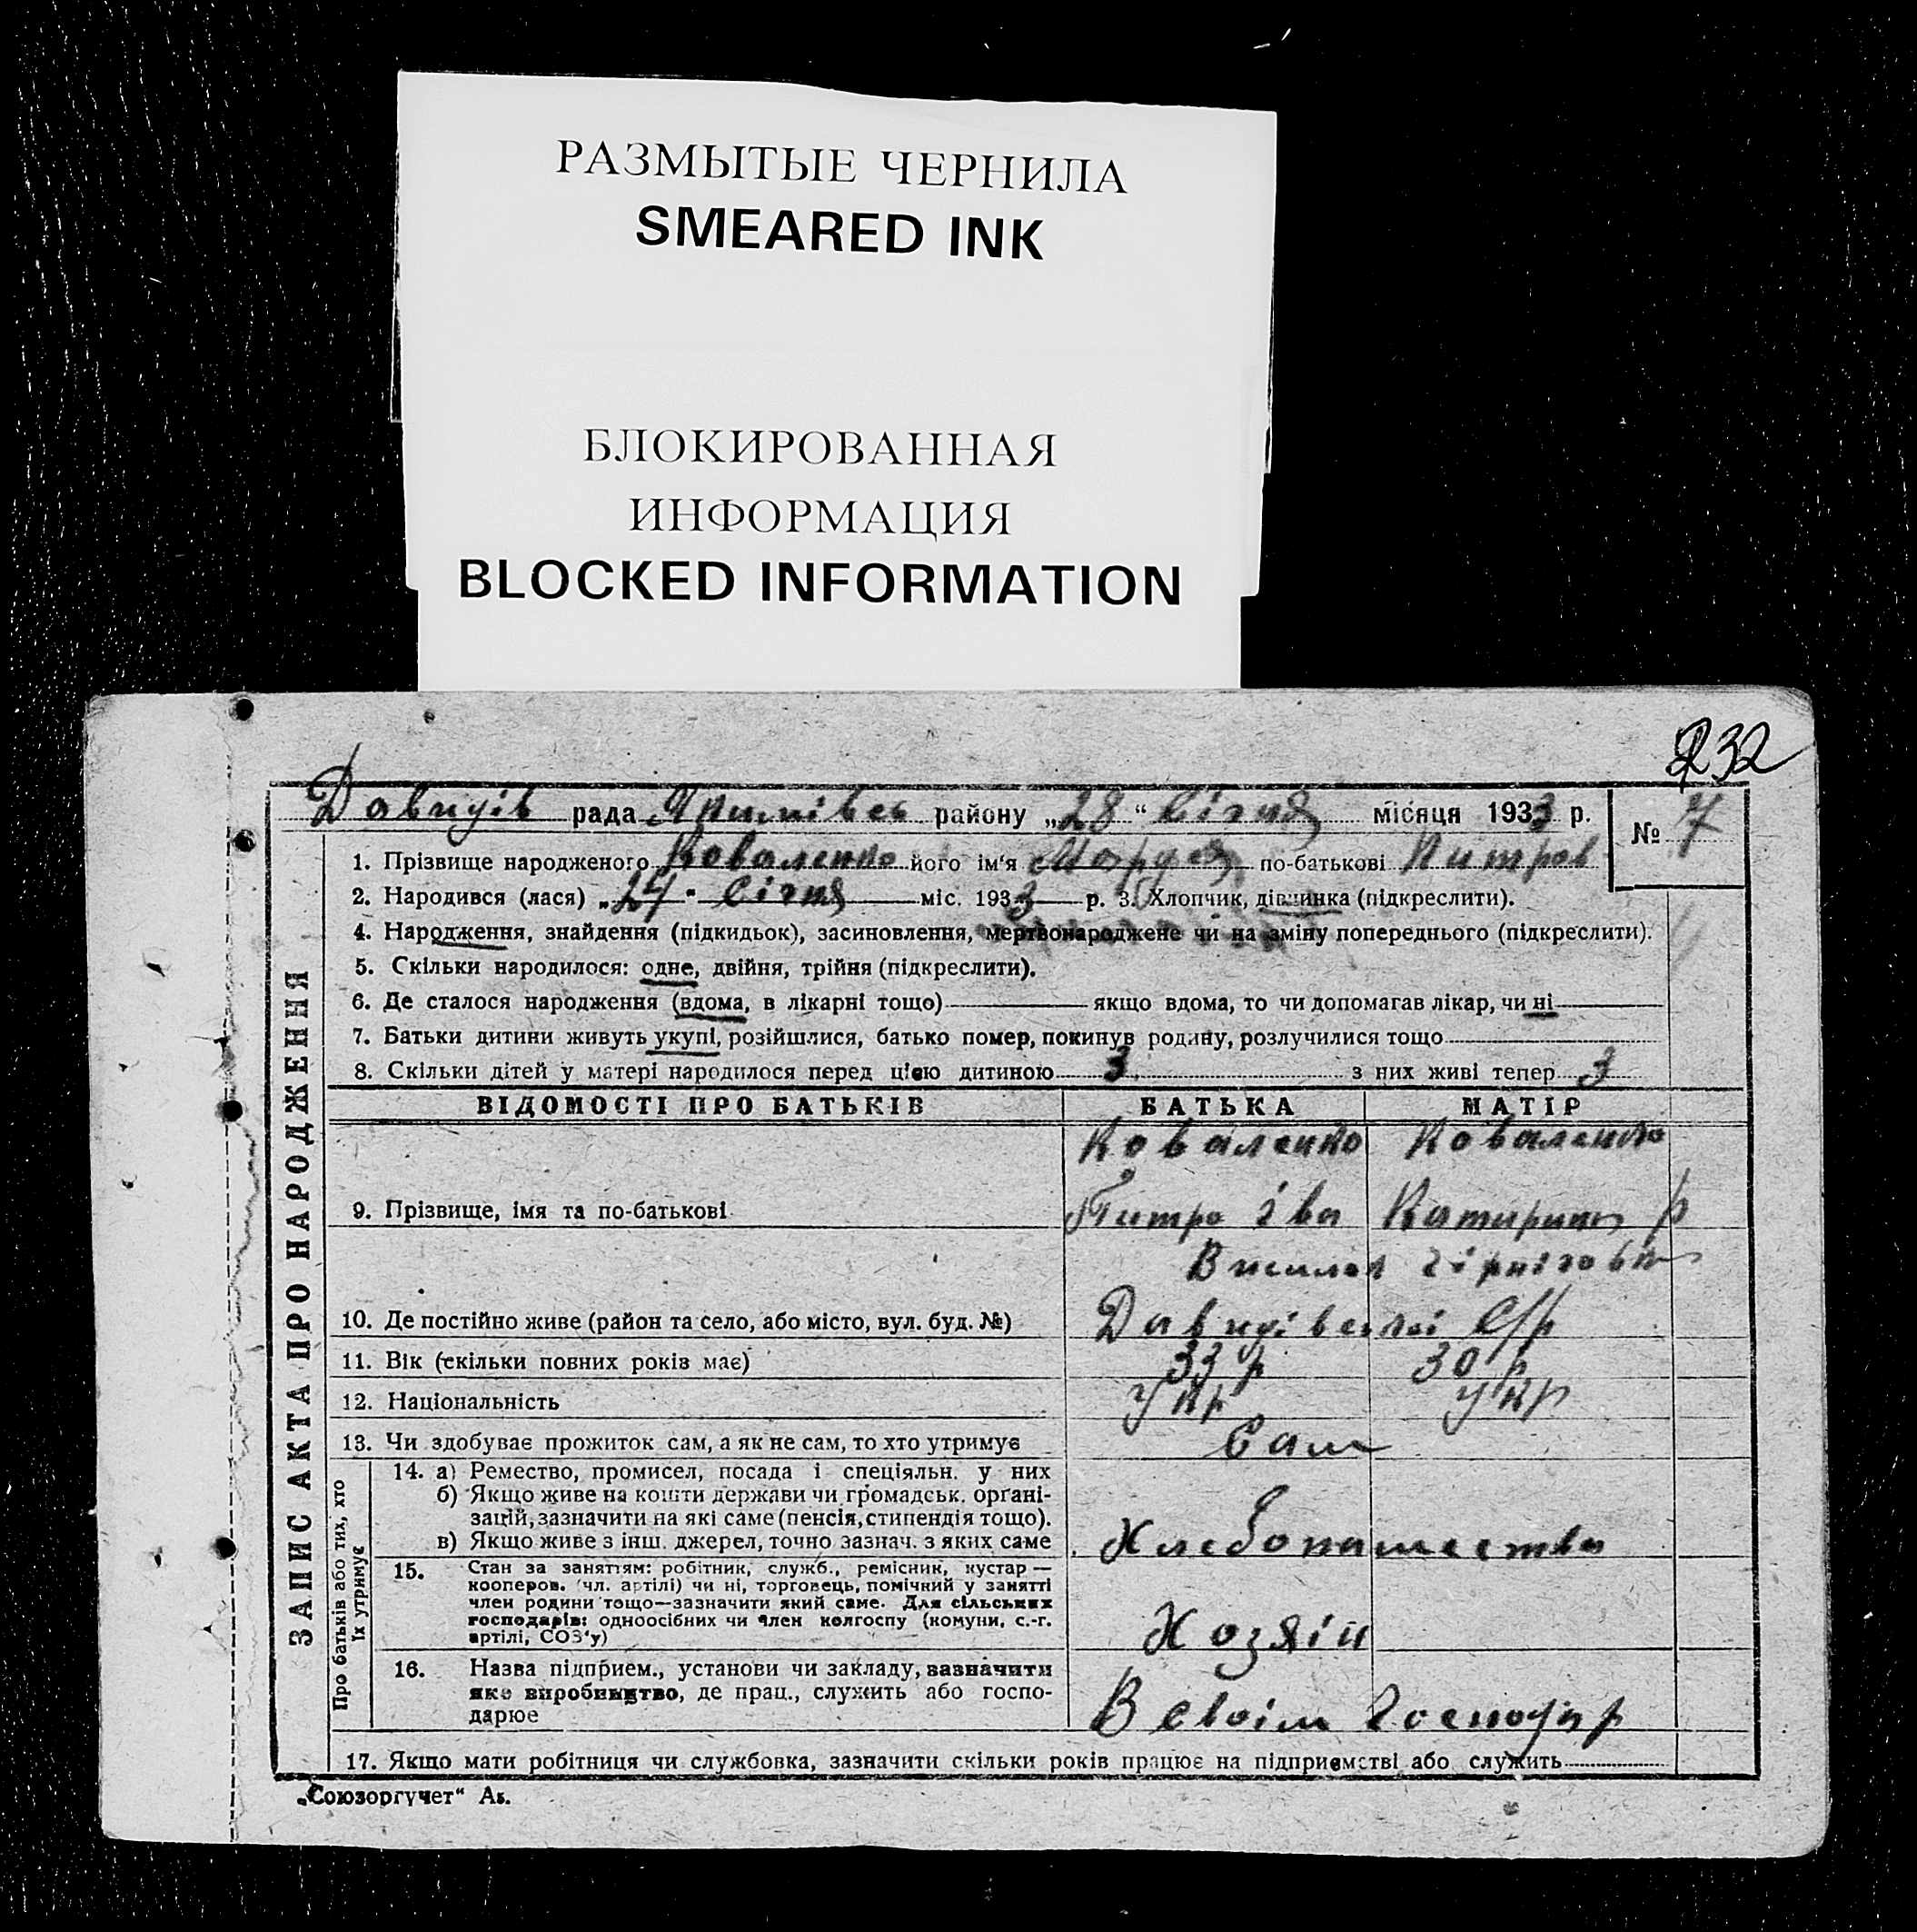 РАЗМЫТЫЕ ЧЕРНИЛА
SMEARED INK
БЛОКИРОВАННАЯ
ИНФОРМАЦИЯ
BLOCKED INFORMATION
232
Давидів рада район у „28“ Січня місяця 1933 р. № 7
1. Прізвище народженого Коваленко його ім‘я по-батькові Питров
2. Народився (лася) „27“ Січня міс. 1933 р. 3. Хлопчик, дівчинка (підкреслити).
4. Народження, знайдення (підкидьок), засиновлення, мертвонароджене чи на зміну попереднього (підкреслити).
5. Скільки народилося: одне, двійня, трійня (підкреслити).
6. Де сталося народження (вдома, в лікарні тощо) якщо вдома, то чи допомагав лікар, чи ні
7. Батьки дитини живуть укупі, розійшлися, батько помер, покинув родину, розлучилися тощо
8. Скільки дітей у матері народилося перед цією дитиною 3 з них живі тепер 3
ЗАПИС АКТА ПРО НАРОДЖЕННЯ
ВІДОМОСТІ ПРО БАТЬКІВ БАТЬКА МАТІР
Коваленко Коваленко
9. Прізвище, імя та по-батькові Питро Іва Катирина р
10. Де постійно живе (район та село, або місто, вул. буд. №) Давидівської С/р
11. Вік (скільки повних років має) 33 р 30 р
12. Національність Укр Укр
13. Чи здобуває прожиток сам, а як не сам, то хто утримує Сам
Про батьків або тих, хто
їх утримує
14. а) Ремество, промисел, посада і спеціяльн. у них
б) Якщо живе на кошти держави чи громадськ. органі-
зацій, зазначити на які саме (пенсія, стипендія тощо).
в) Якщо живе з інш. джерел, точно зазнач. з яких саме Хлебопашество
15. Стан за заняттям: робітник, служб., ремісник, кустар —
кооперов. (чл. артілі) чи ні, торговець, помічний у занятті
член родини тощо—зазначити який саме. Для сільських
господарів: одноосібних чи член колгоспу (комуни, с.-г.
артілі, СОЗ‘у) Хозяїн
16. Назва підприєм., установи чи закладу, зазначити
яке виробництво, де прац., служить або госпо-
дарює В своїм господар
17. Якщо мати робітниця чи службовка, зазначити скільки років працює на підприємстві або служить
„Союзоргучет“ Аѣ.